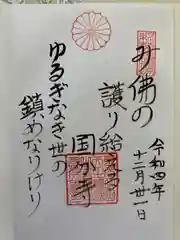 み佛の
護り給える
国分寺
ゆるぎなき世の
鎮めなりけり
令和四年
十二月廿一日